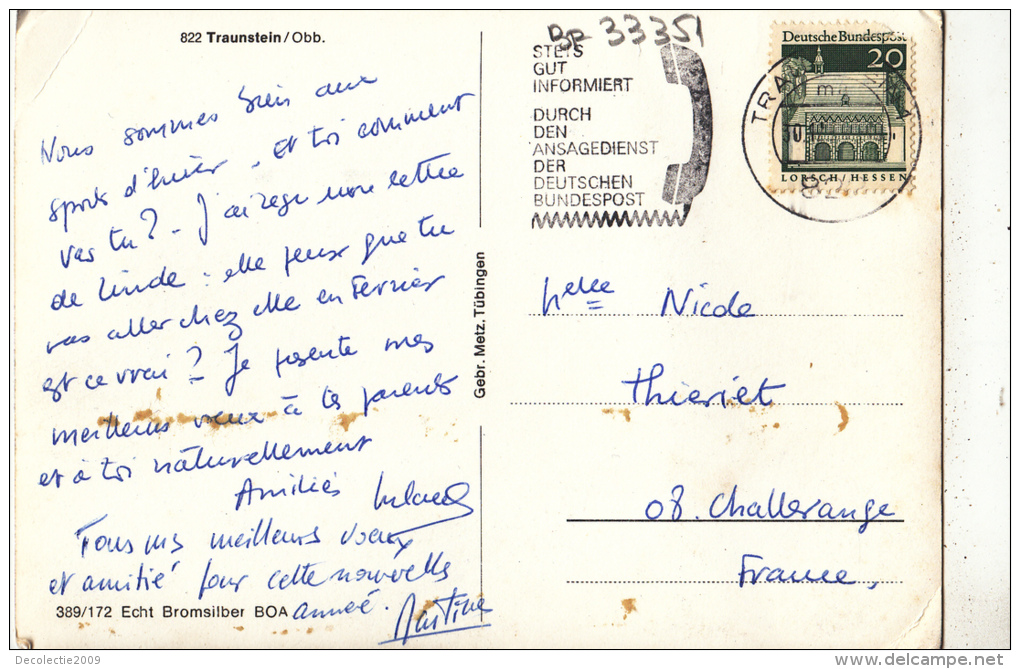 822 Traunstein/Obb.
BR 33351
STETS
GUT
INFORMIERT
DURCH
DEN
ANSAGEDIENST
DER
DEUTSCHEN
BUNDESPOST
Deutsche Bundespost
20
LORSCH / HESSEN
Nous sommes bien aux
sports d'hiver. Et toi comment
vas tu? - J'ai reçu une lettre
de Linde: elle que tu
vas aller chez elle en Février
est ce vrai? Je présente mes
meilleurs vœux à tes parents
et à toi naturellement
Amitiés
Tous mes meilleurs voeux
et amitié pour cette nouvelle
année. Martine
389/172 Echt Bromsilber BOA
Gebr. Metz, Tübingen
Melle Nicole
Thieriet
08. Challerange
France.
Decolectie2009
www.delcampe.net